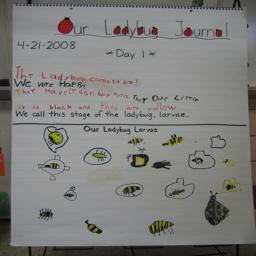 Our Ladybug Journal
4-21-2008
Day 1
The Ladybugs came to
We were Happy
They are Little
it is black and they are yellow
We call this stage of the ladybug, larvae.
Our Ladybug Larvae